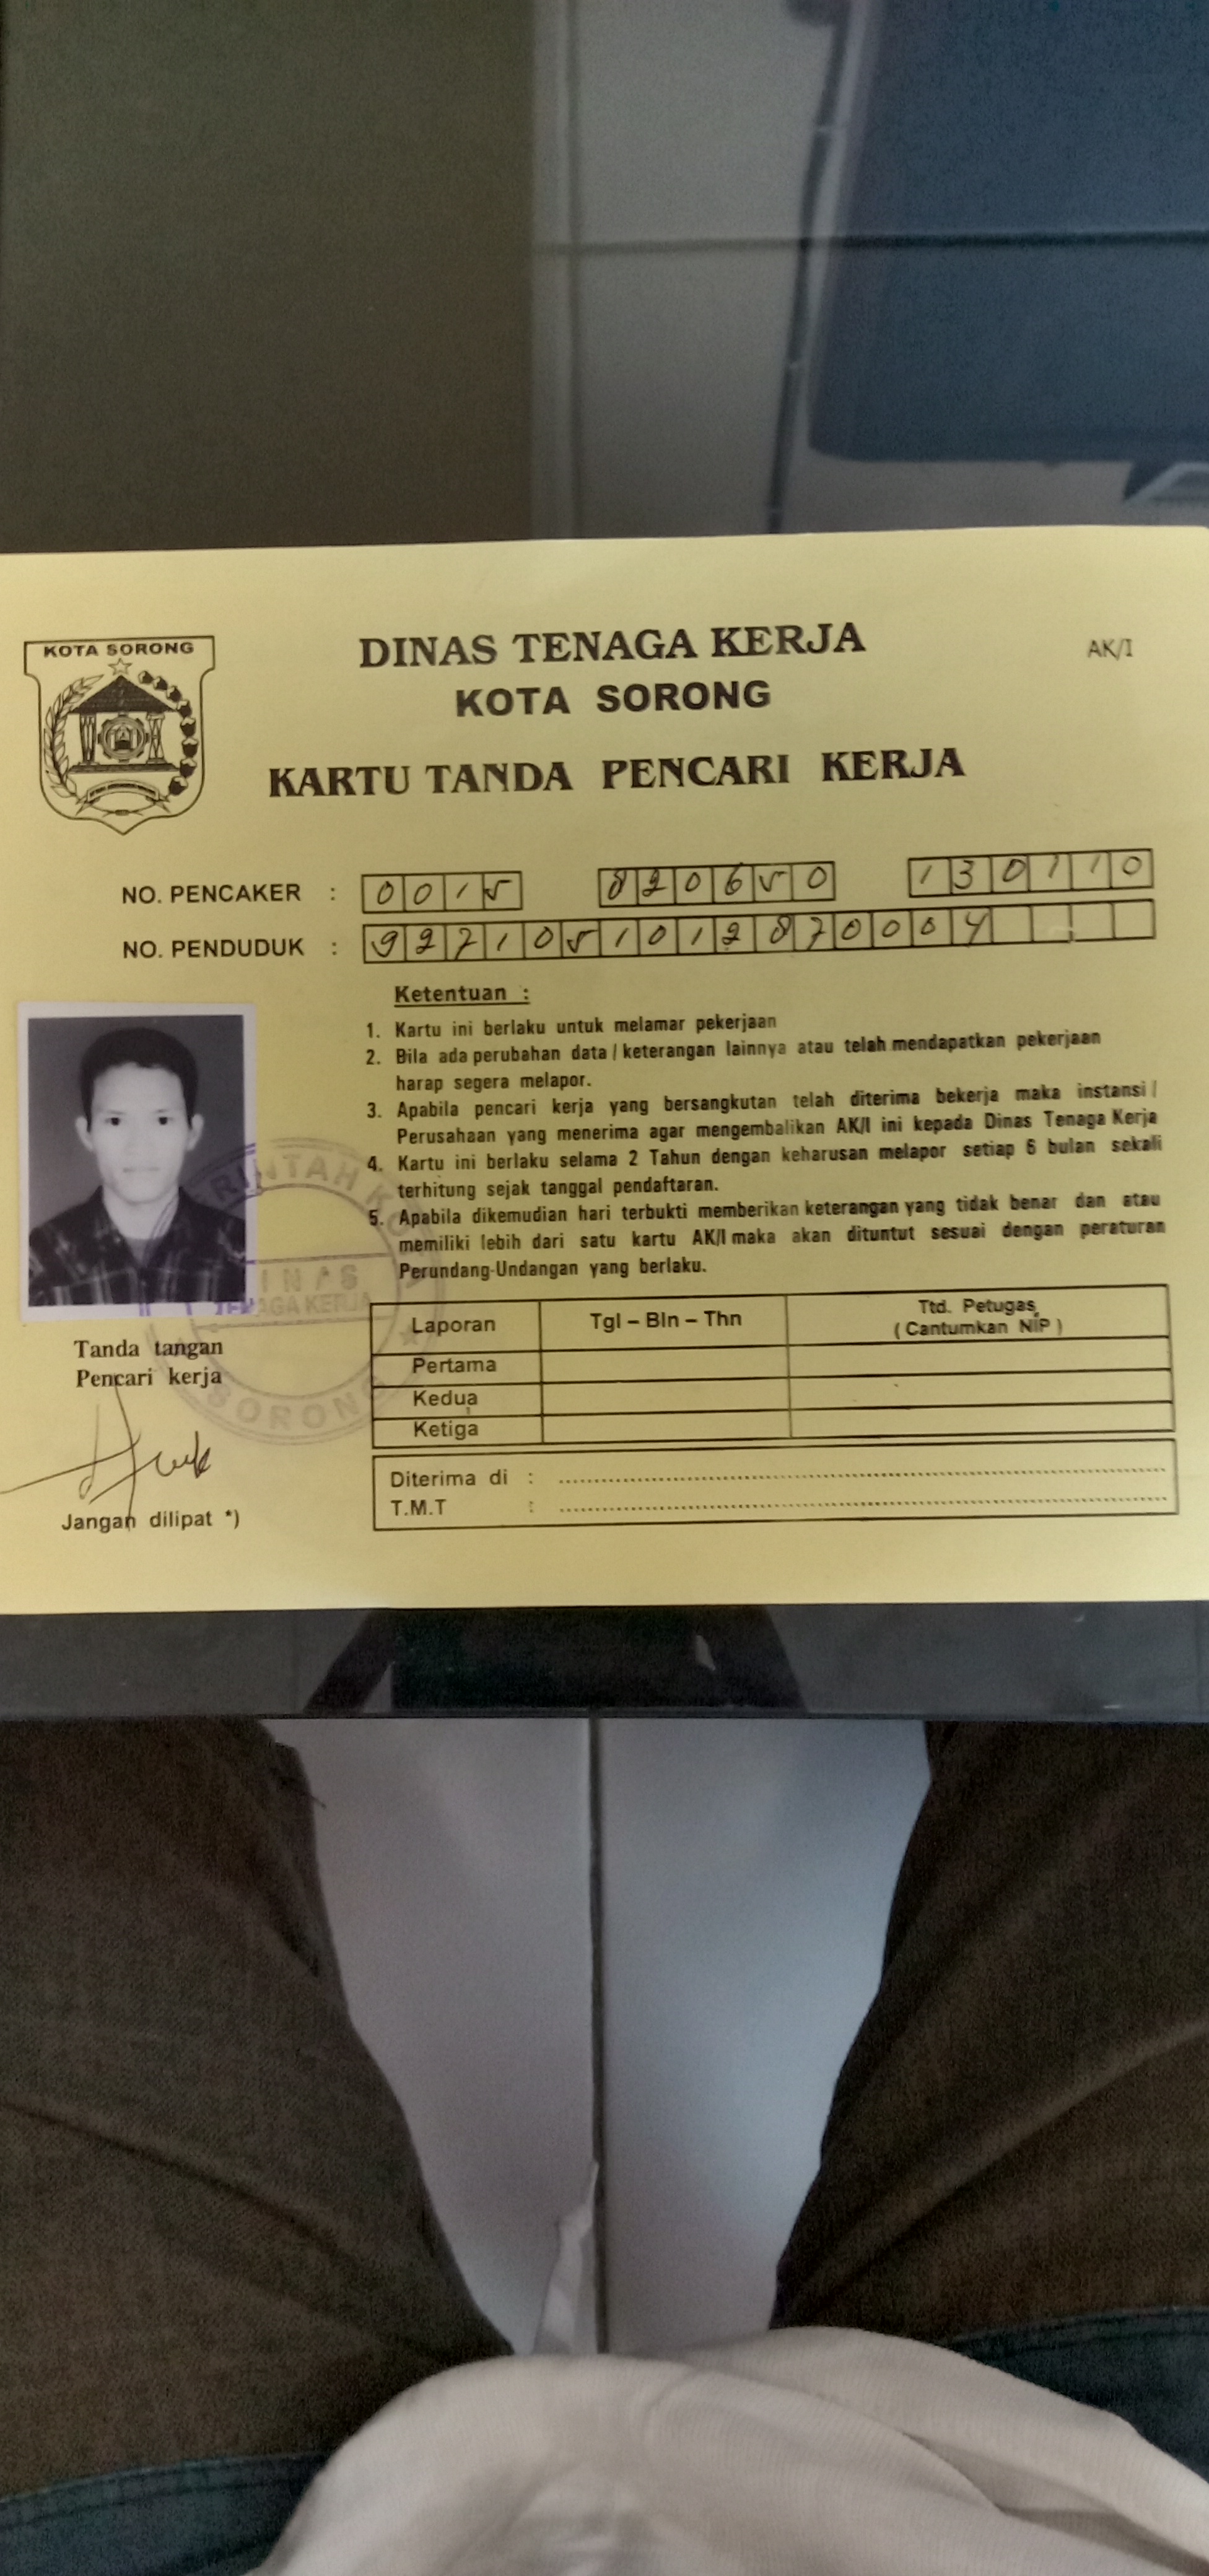 KOTA SORONG
DINAS TENAGA KERJA
KOTA SORONG
AK/I
KARTU TANDA PENCARI KERJA
NO. PENCAKER : 0015 820650 130110
NO. PENDUDUK : 9271051012870004
Ketentuan :
1. Kartu ini berlaku untuk melamar pekerjaan
2. Bila ada perubahan data / keterangan lainnya atau telah mendapatkan pekerjaan
harap segera melapor.
3. Apabila pencari kerja yang bersangkutan telah diterima bekerja maka instansi /
Perusahaan yang menerima agar mengembalikan AK/I ini kepada Dinas Tenaga Kerja
4. Kartu ini berlaku selama 2 Tahun dengan keharusan melapor setiap 6 bulan sekali
terhitung sejak tanggal pendaftaran.
5. Apabila dikemudian hari terbukti memberikan keterangan yang tidak benar dan atau
memiliki lebih dari satu kartu AK/I maka akan dituntut sesuai dengan peraturan
Perundang-Undangan yang berlaku.
DINAS
TENAGA KERJA
SORONG
Tanda tangan
Pencari kerja
Jangan dilipat *)
Laporan Tgl – Bln – Thn Ttd. Petugas
( Cantumkan NIP )
Pertama
Kedua
Ketiga
Diterima di :
T.M.T :